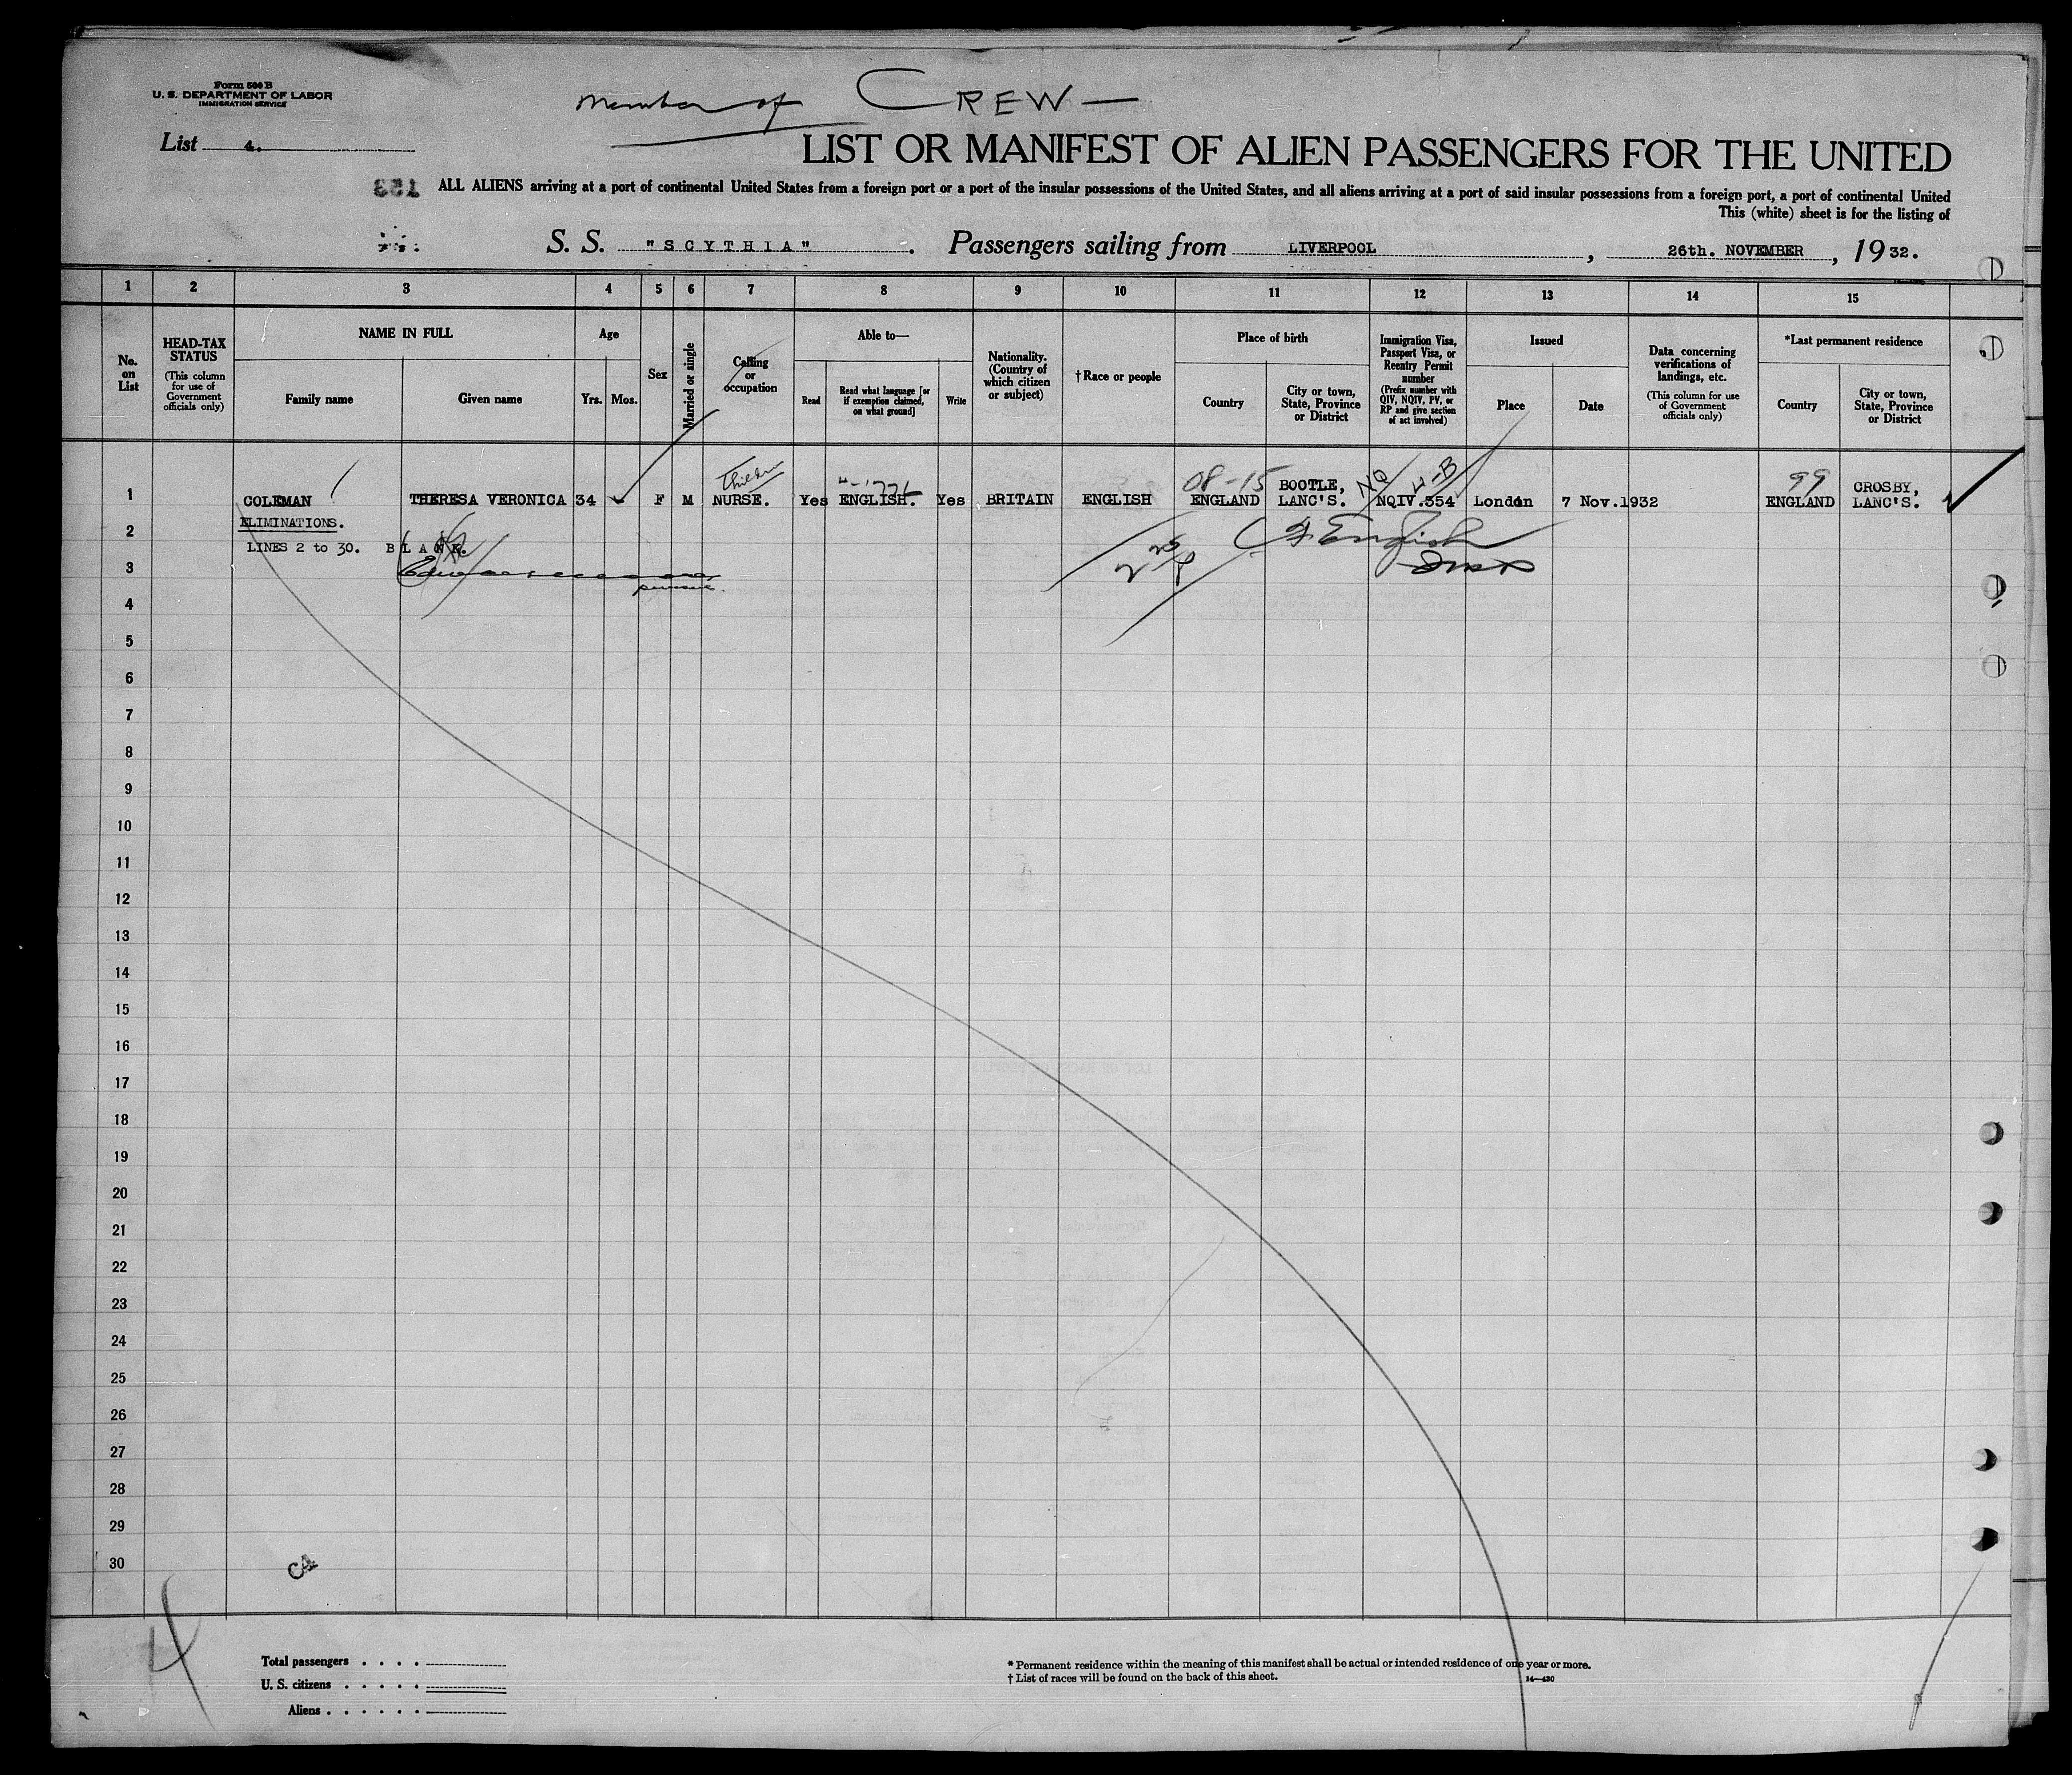 Form 500 B
U. S. DEPARTMENT OF LABOR
IMMIGRATION SERVICE
Member of CREW —
List 4.
LIST OR MANIFEST OF ALIEN PASSENGERS FOR THE UNITED
153 ALL ALIENS arriving at a port of continental United States from a foreign port or a port of the insular possessions of the United States, and all aliens arriving at a port of said insular possessions from a foreign port, a port of continental United
This (white) sheet is for the listing of
S. S. "SCYTHIA" . Passengers sailing from LIVERPOOL , 26th. NOVEMBER , 1932.
1 2 3 4 5 6 7 8 9 10 11 12 13 14 15
No. on List
HEAD-TAX STATUS (This column for use of Government officials only)
NAME IN FULL
Family name
Given name
Age
Yrs.
Mos.
Sex
Married or single
Calling or occupation
Able to—
Read
Read what language [or if exemption claimed, on what ground]
Write
Nationality. (Country of which citizen or subject)
† Race or people
Place of birth
Country
City or town, State, Province or District
Immigration Visa, Passport Visa, or Reentry Permit number (Prefix number with QIV, NQIV, PV, or RP and give section of act involved)
Issued
Place
Date
Data concerning verifications of landings, etc. (This column for use of Government officials only)
*Last permanent residence
Country
City or town, State, Province or District
08-15 NQ 4-B 99
1 COLEMAN THERESA VERONICA 34 F M NURSE. Yes ENGLISH. Yes BRITAIN ENGLISH ENGLAND BOOTLE, LANC'S. NQIV.354 London 7 Nov.1932 ENGLAND CROSBY, LANC'S.
ELIMINATIONS.
2 LINES 2 to 30. BLANK. English
3
4
5
6
7
8
9
10
11
12
13
14
15
16
17
18
19
20
21
22
23
24
25
26
27
28
29
30
CA
Total passengers . . . .
U. S. citizens . . . . .
Aliens . . . . . .
* Permanent residence within the meaning of this manifest shall be actual or intended residence of one year or more.
† List of races will be found on the back of this sheet. 14—430